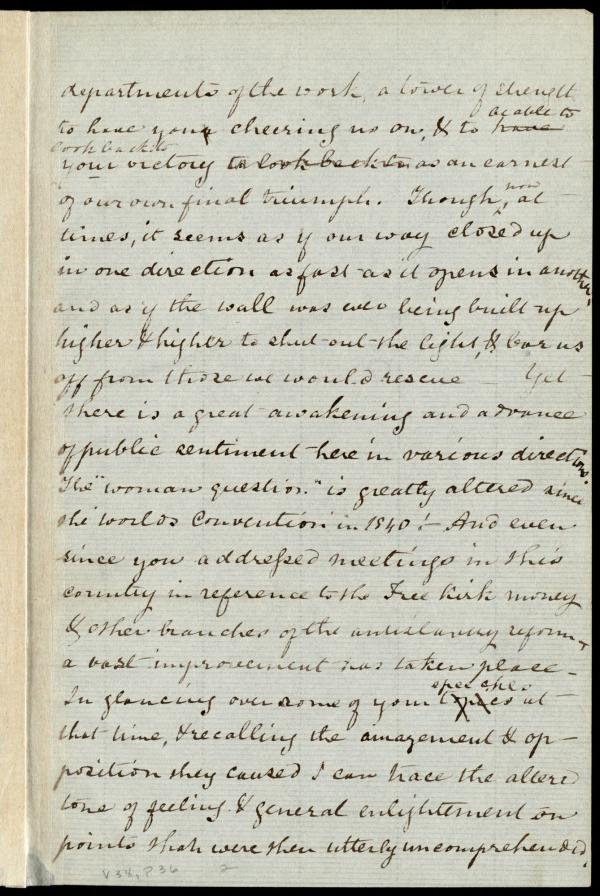 departments of the work, a tower of strength
be able to
to have you cheering us on, & to have
look back to
your victory to look back to as an earnest
of our own final triumph. Though, now at
times, it seems as if our way closed up
in one direction as fast as it opens in another,
and as if the wall was ever being built up
higher & higher to shut out the light, & bar us
off from those we would rescue — Yet
there is a great awakening and advance
of public sentiment here in various directions.
The "woman question" is greatly altered since
the worlds Convention in 1840! — And even
since you addressed meetings in this
country in reference to the Free Kirk money
& other branches of the antislavery reform –
a vast improvement has taken place –
speeches
In glancing over some of your at
that time, & recalling the amazement & op-
position they caused I can trace the altered
tone of feeling & general enlightement on
points that were then utterly uncomprehended.
V 38, P 36 2